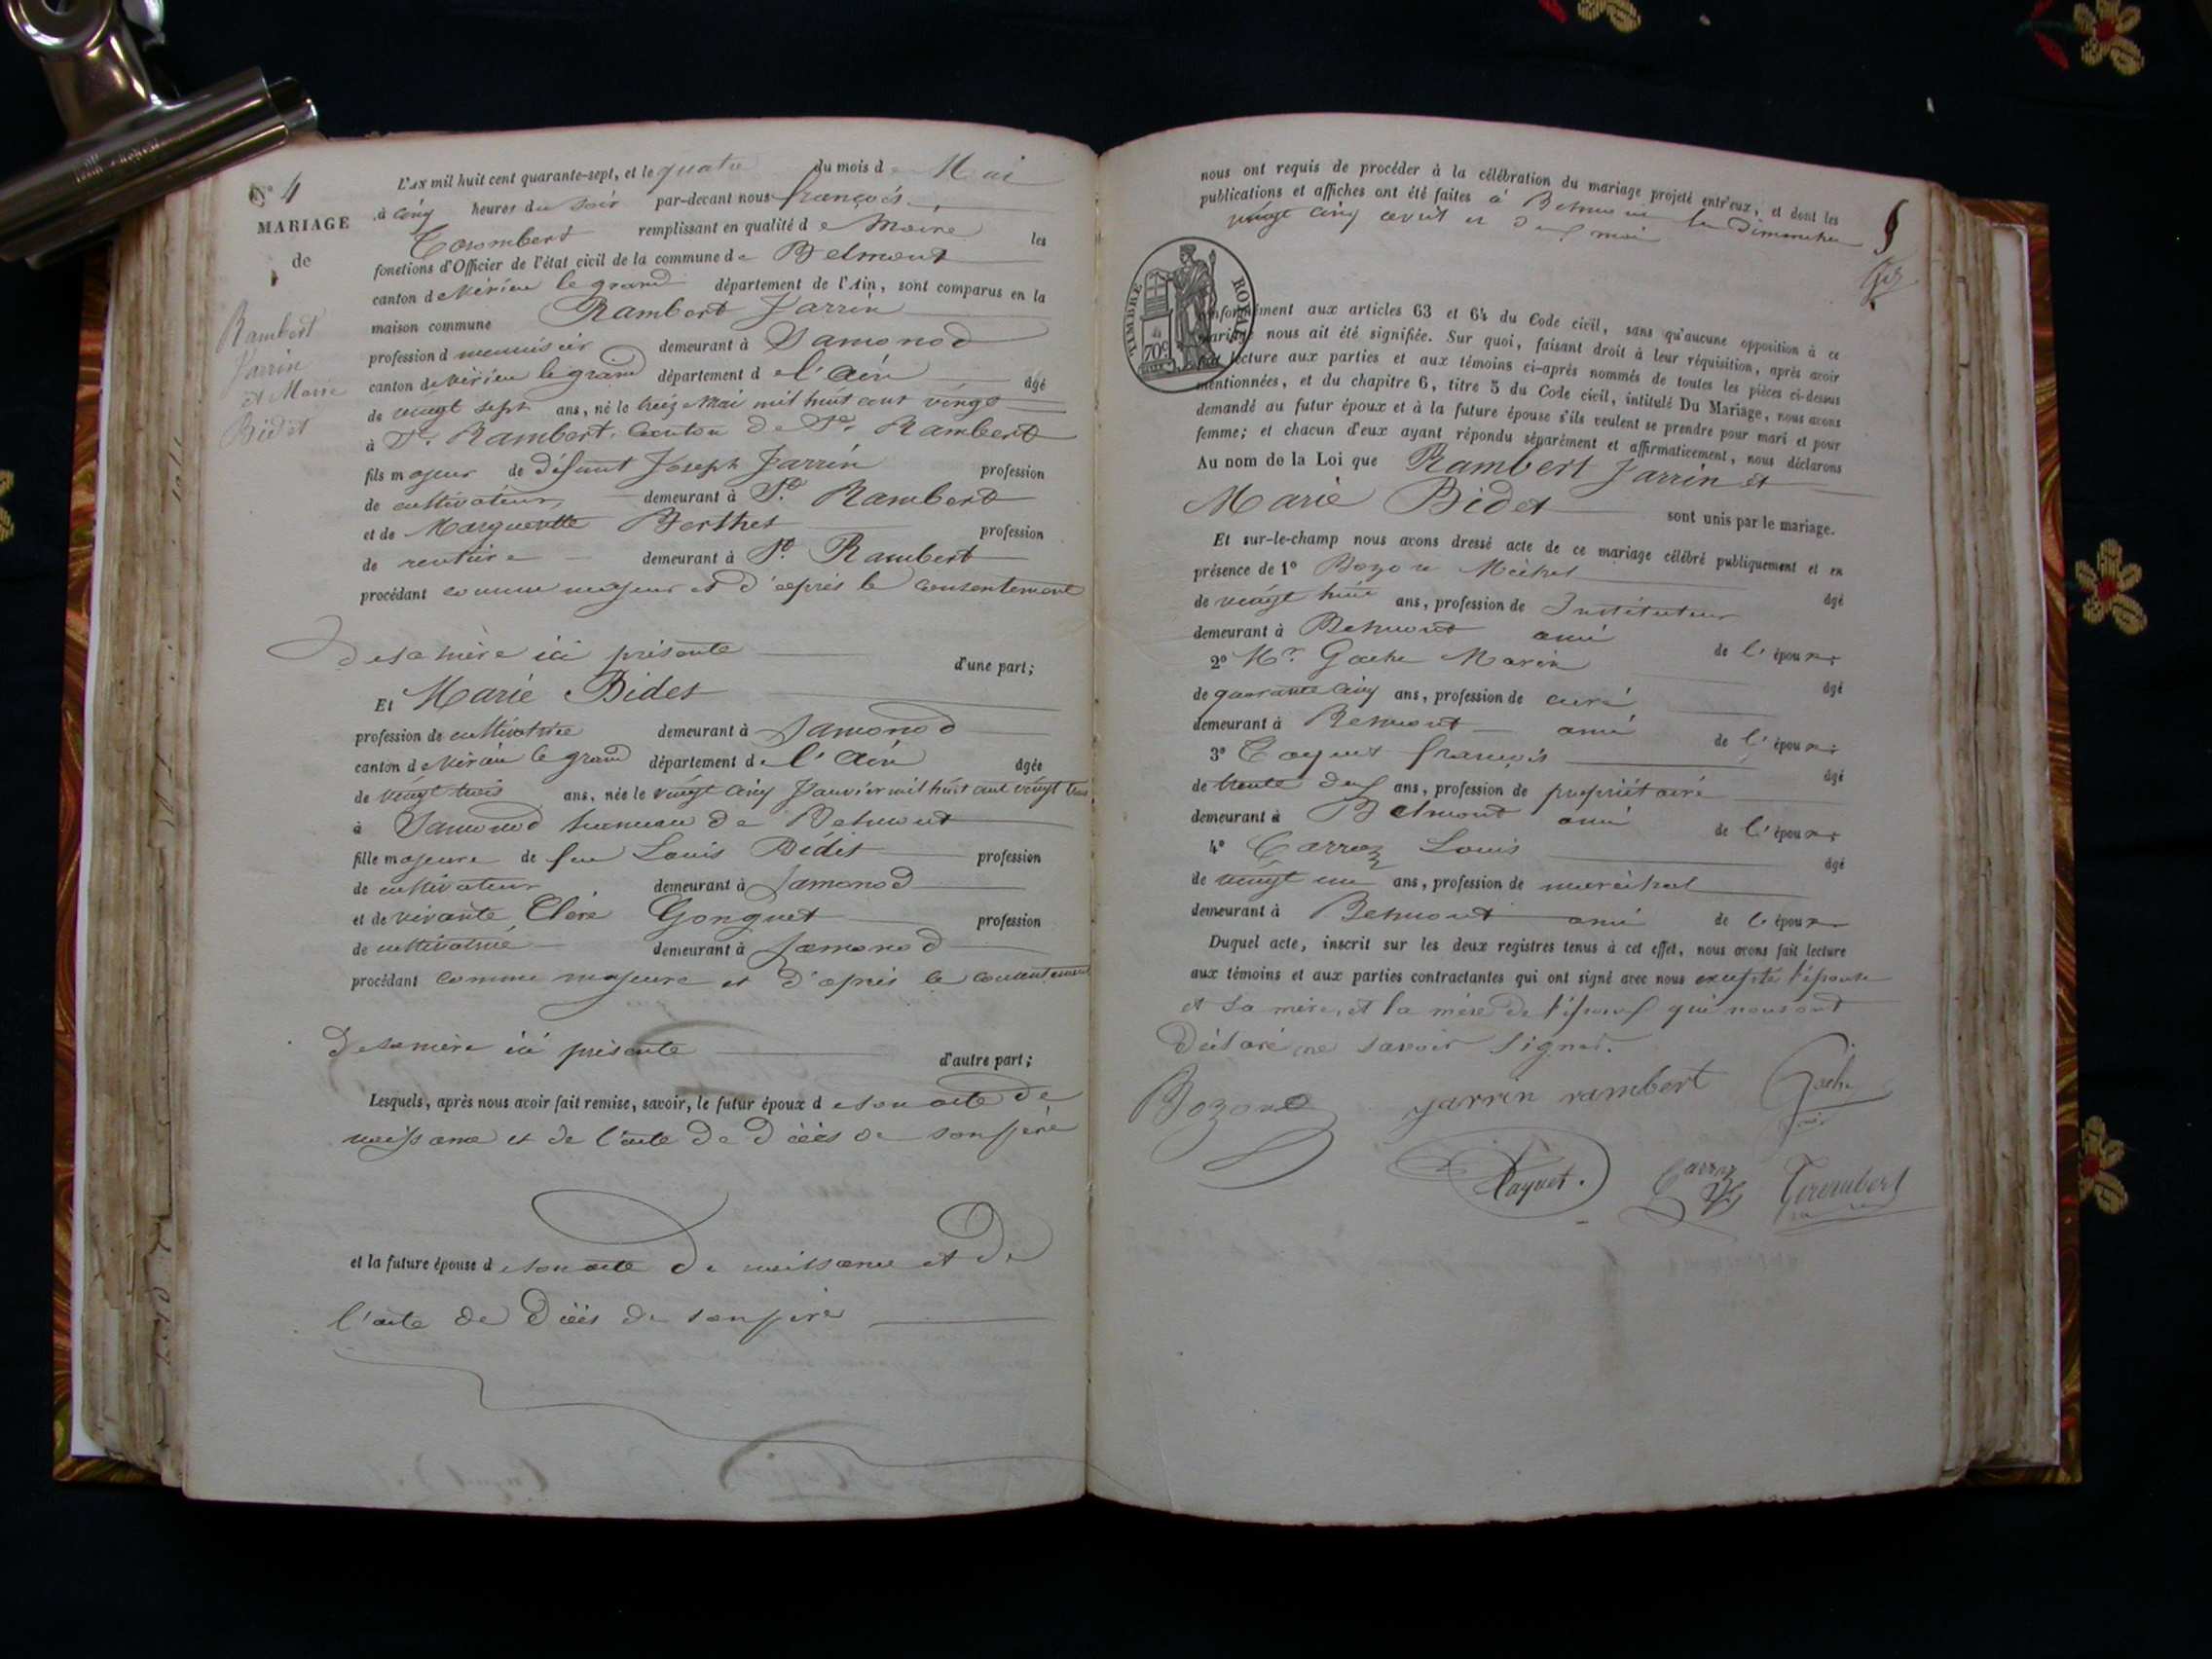 N° 4
MARIAGE
de
Rambert
Jarrin
et Marie
Bidet
L'AN mil huit cent quarante-sept, et le quatre du mois de Mai
à cinq heures du soir par-devant nous françois
remplissant en qualité de Maire les
fonctions d'Officier de l'état civil de la commune de Belmont
canton de Virieu le grand département de l'Ain, sont comparus en la
maison commune Rambert Jarrin
profession d menuisier demeurant à Samonod
canton de Virieu le grand département de l'Ain âgé
de vingt sept ans, né le treize Mai mil huit cent vingt
à St. Rambert, Canton de St. Rambert
fils majeur de défunt Joseph Jarrin profession
de cultivateur, demeurant à St Rambert
et de Marguerite Berthet profession
de rentière demeurant à St Rambert
procédant comme majeur et d'après le consentement
de sa mère ici présente d'une part;
Et Marie Bidet
profession de cultivatrice demeurant à Samonod
canton de Virieu le grand département de l'Ain âgée
de vingt trois ans, née le vingt cinq Janvier mil huit cent vingt trois
à Samonod hameau de Belmont
fille majeure de feu Louis Bidet profession
de cultivateur demeurant à Samonod
et de vivante Clère Gonguet profession
de cultivatrice demeurant à Samonod
procédant comme majeure et d'après le consentement
de sa mère ici présente d'autre part;
Lesquels, après nous avoir fait remise, savoir, le futur époux de son acte de
naissance et de l'acte de décès de son père
et la future épouse de son acte de naissance et de
l'acte de décès de son père
nous ont requis de procéder à la célébration du mariage projeté entr'eux, et dont les
publications et affiches ont été faites à Belmont les Dimanches
vingt cinq avril et deux mai
TIMBRE ROYAL
70c
conformément aux articles 63 et 64 du Code civil, sans qu'aucune opposition à ce
mariage nous ait été signifiée. Sur quoi, faisant droit à leur réquisition, après avoir
fait lecture aux parties et aux témoins ci-après nommés de toutes les pièces ci-dessus
mentionnées, et du chapitre 6, titre 5 du Code civil, intitulé Du Mariage, nous avons
demandé au futur époux et à la future épouse s'ils veulent se prendre pour mari et pour
femme; et chacun d'eux ayant répondu séparément et affirmativement, nous déclarons
Au nom de la Loi que Rambert Jarrin et
Marie Bidet sont unis par le mariage.
Et sur-le-champ nous avons dressé acte de ce mariage célébré publiquement et en
présence de 1° Bozon Michel âgé
de vingt huit ans, profession de Instituteur
demeurant à Belmont ami de l'époux;
2° Mr. Gache Marin âgé
de quarante cinq ans, profession de curé
demeurant à Belmont ami de l'époux;
3° Tayut françois âgé
de trente deux ans, profession de propriétaire
demeurant à Belmont ami de l'époux;
4° Carraz Louis âgé
de vingt un ans, profession de maréchal
demeurant à Belmont ami de l'époux
Duquel acte, inscrit sur les deux registres tenus à cet effet, nous avons fait lecture
aux témoins et aux parties contractantes qui ont signé avec nous excepté l'épouse
et sa mère, et la mère de l'époux qui nous ont
déclaré ne savoir signer.
Bozon jarrin rambert Gache
Carraz